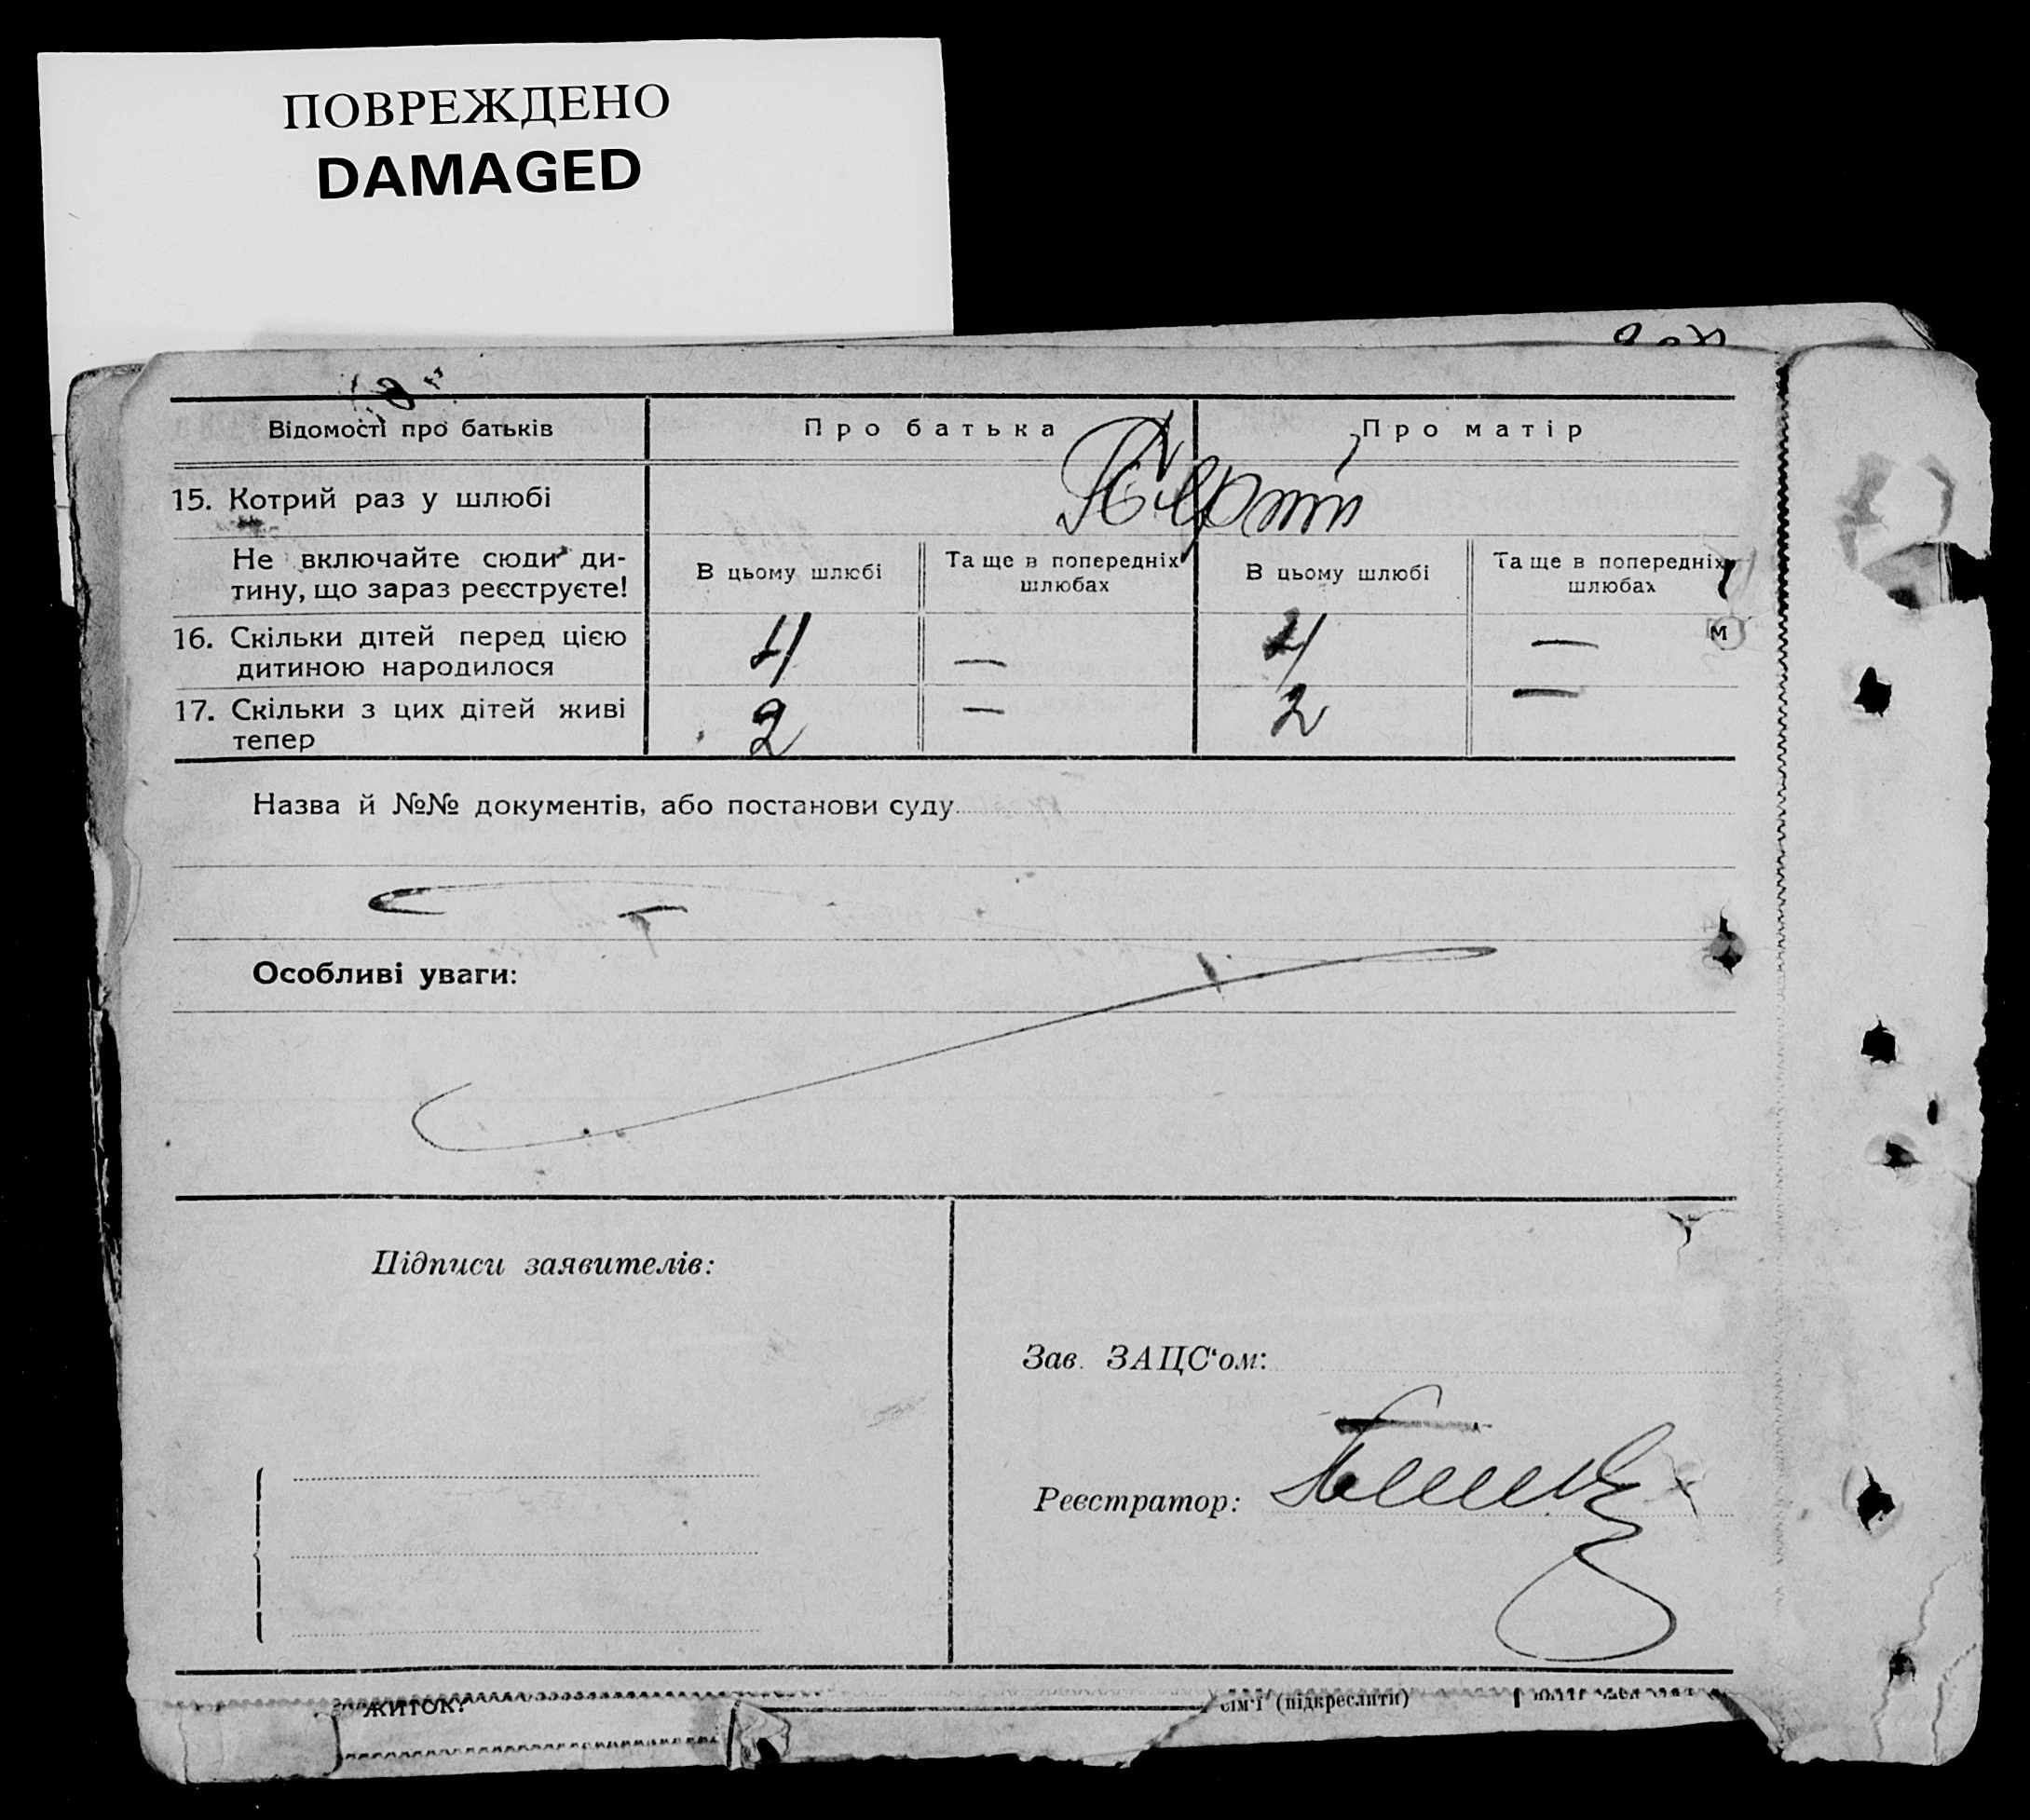 ПОВРЕЖДЕНО
DAMAGED
Відомості про батьків
Про батька
Про матір
15. Котрий раз у шлюбі
Перший
Не включайте сюди ди-
тину, що зараз реєструєте!
В цьому шлюбі
Та ще в попередніх
шлюбах
В цьому шлюбі
Та ще в попередніх
шлюбах
16. Скільки дітей перед цією
дитиною народилося
4 — 4 —
м
17. Скільки з цих дітей живі
тепер
2 — 2 —
Назва й №№ документів, або постанови суду
Особливі уваги:
Підписи заявителів:
Зав. ЗАЦС‘ом:
Реєстратор:
житок?
сім'ї (підкреслити)